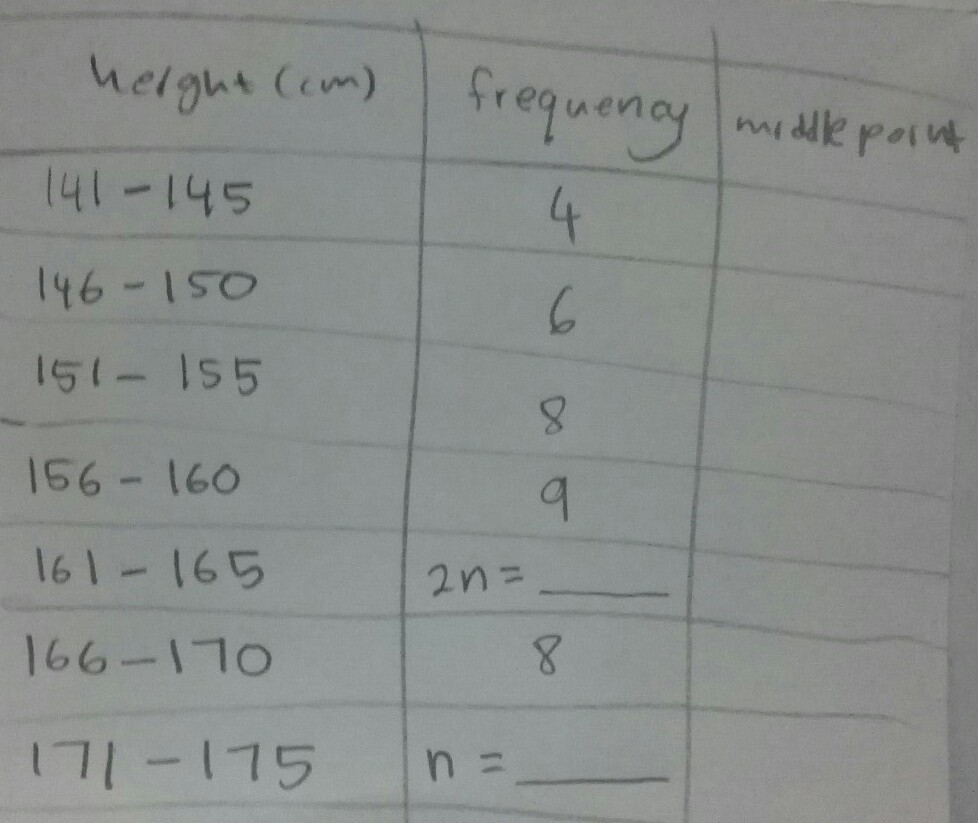 height (cm) frequency middle point
141 - 145 4
146 - 150 6
151 - 155 8
156 - 160 9
161 - 165 2n = ____
166 - 170 8
171 - 175 n = ____